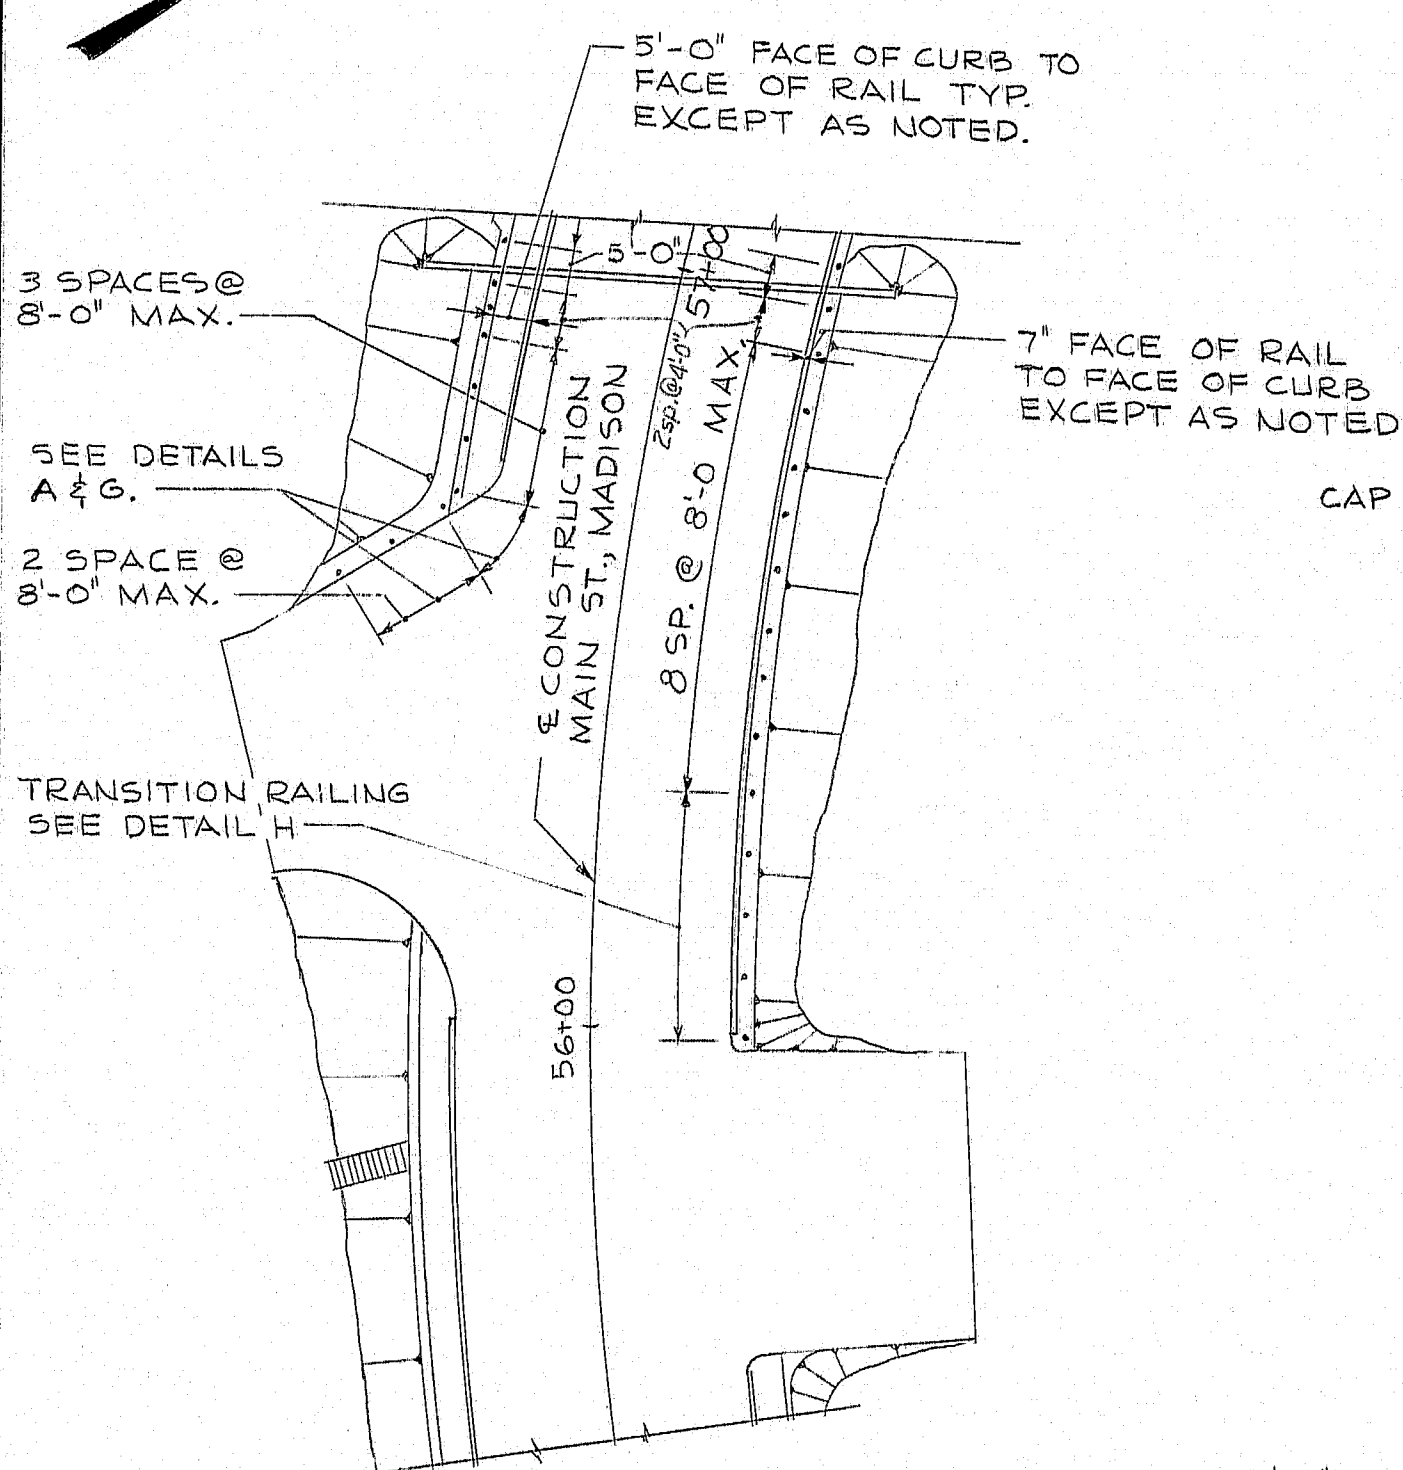 5'-0" FACE OF CURB TO
FACE OF RAIL TYP.
EXCEPT AS NOTED.
3 SPACES @
8'-0" MAX.
5'-0"
57+00
2 sp. @ 4'-0"
8 SP. @ 8'-0 MAX.
7" FACE OF RAIL
TO FACE OF CURB
EXCEPT AS NOTED
CAP
SEE DETAILS
A & G.
2 SPACE @
8'-0" MAX.
℄ CONSTRUCTION
MAIN ST., MADISON
TRANSITION RAILING
SEE DETAIL H
56+00